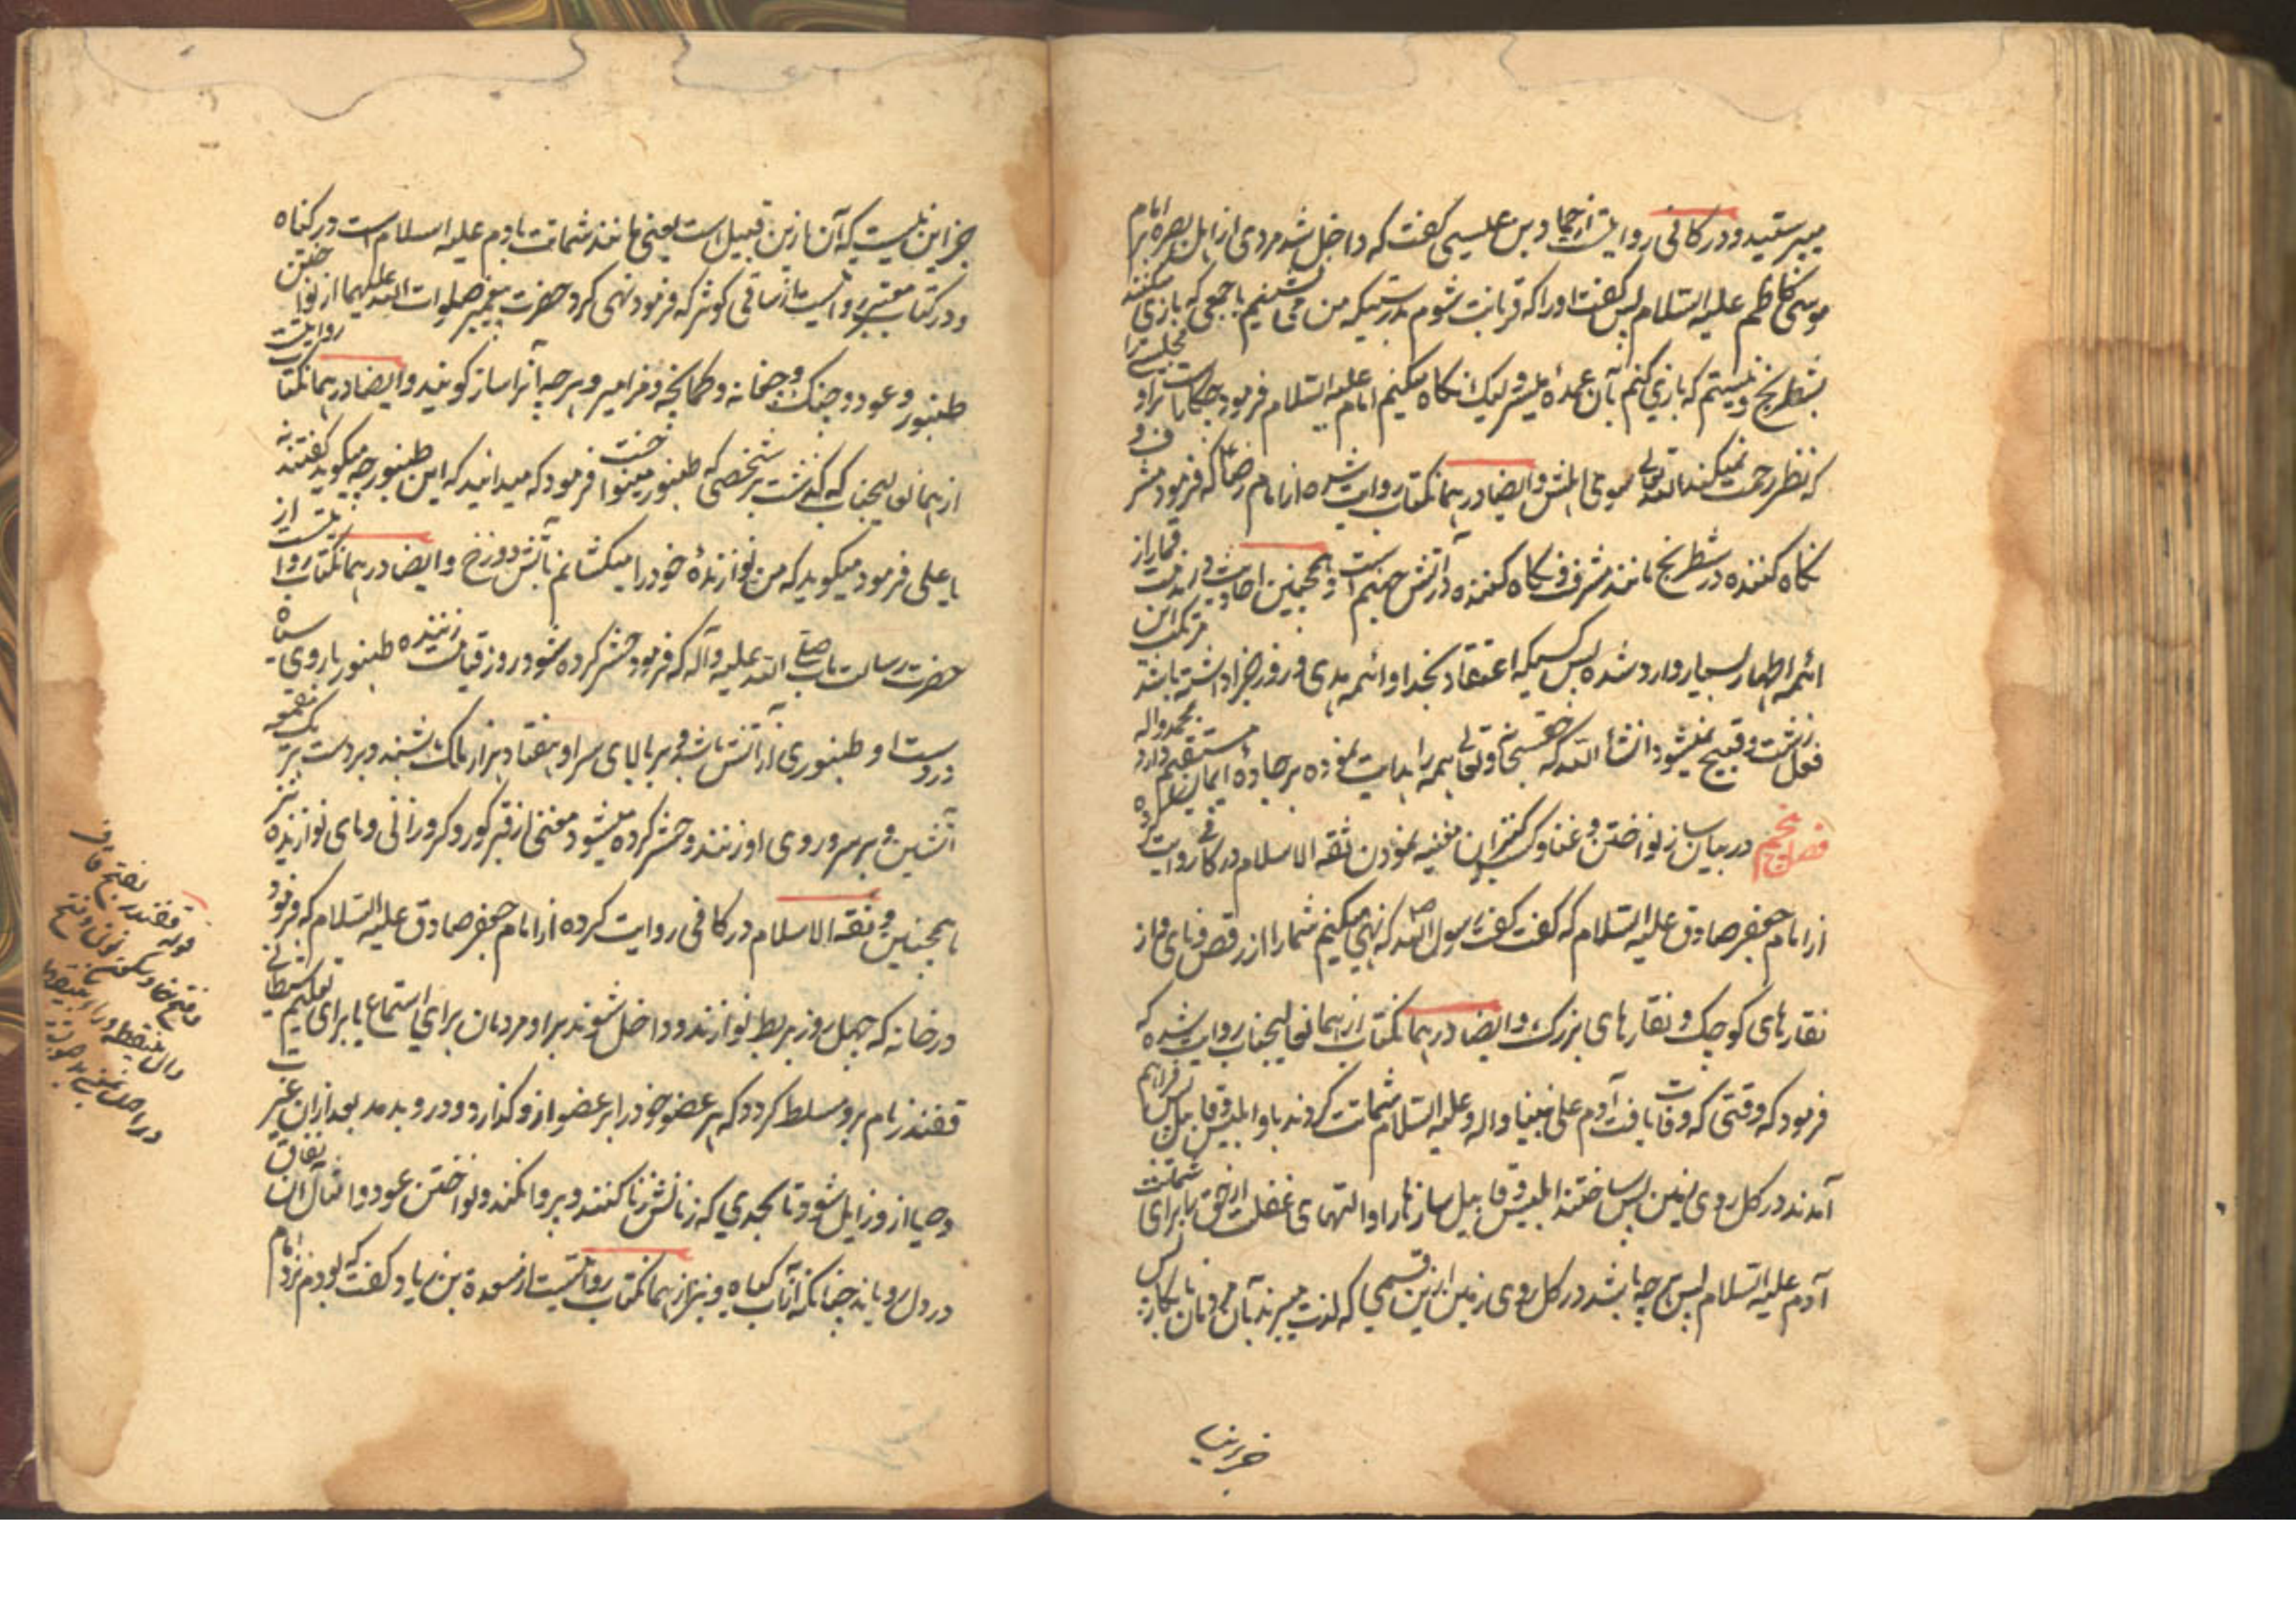 میپرستید و در کافی روایتست از حماد بن عیسی گفت که داخل شد مردی از اهل بصره بر امام
موسی کاظم علیه السلام پس گفت او را که قربانت شوم بدرستیکه من می نشینم با جمعی که بازی میکنند
بشطرنج و نیستم که بازی کنم بآن عمده و لیک نگاه میکنم امام علیه السلام فرمود چکار است ترا و مجلسی را
که نظر رحمت نمیکند الله تعالی بسوی اهلش و ایضا در همانکتاب روایت شده از امام رضا ع که فرمود مشرف و
نگاه کننده در شطرنج مانند مشرف و نگاه کننده در آتش جهنم است و همچنین احادیث در مذمت قمار از
ائمه اطهار بسیار وارد شده پس کسیکه اعتقاد بخدا و ائمه هدی و روز جزا داشته باشد مرتکب این
فعل زشت و قبیح نمیشود انشأ الله که حقسبحانه و تعالی همه را هدایت نموده بر جاده ایمان مستقیم دارد بمحمد و اله
فصل پنجم در بیان ساز نواختن و غنا و کنیزان مغنیه نمودن ثقه الاسلام در کافی روایت کرده
از امام جعفر صادق علیه السلام که گفت گفت رسول الله ص که نهی میکنم شما را از رقص و نای و از
نقارهای کوچک و نقارهای بزرگ و ایضا در همانکتاب از همانعالیجناب روایت شده که
فرمود که وقتی که وفات یافت آدم علی نبینا و اله و علیه السلام شماتت کردند باو ابلیس و قابیل پس فراهم
آمدند در کل روی زمین پس ساختند ابلیس و قابیل سازها را و التهای غفلت از حق را برای شماتت
آدم علیه السلام پس هر چه باشد در کل روی زمین ازین قسمی که لذت میبرند بآن مردمان بکار نه پس
جز این نیست
جز این نیست که آن ازین قبیل است یعنی مانند شماتت بادم علیه السلام است در گناه
و در کتاب معتبر روایتست از ساقی کوثر که فرمود نهی کرد حضرت پیغمبر صلوات الله علیهما از نواختن
طنبور و عود و چنگ و چغانه و کمانچه و مزامیر و هر چه آنرا ساز گویند و ایضا در همانکتاب روایتست
از همانعالیجناب که گذشت بر شخصی که طنبور مینواخت فرمود که میدانید که این طنبور چه میگوید گفتند نه
یا علی فرمود میگوید که من نوازندهٔ خود را میکشانم بآتش دوزخ و ایضا در همانکتاب روایتست از
حضرت رسالت مآب صلی الله علیه و آله که فرمود حشر کرده شود روز قیامت زننده طنبور با روی سیاه
و در دست او طنبوری از آتش باشد و بر بالای سر او هفتاد هزار ملک باشند و بر دست هر یک
آتشین و بر سر و روی او زنند و حشر کرده میشود مغنی از قبر کور و کر و زانی و نای نوازنده نیز
همچنین و ثقه الاسلام در کافی روایت کرده از امام جعفر صادق علیه السلام که فرمود
در خانه که چهل روز بربط نوازند و داخل شوند بر او مردمان برای استماع یا برای تعلیم شیطانی
قفندر نام برو مسلط گردد که هر عضو خود را بر عضو او گذارد و درو بدمد بعد ازان غیرت
و حیا از و زایل شود تا بحدی که زنانش زنا کنند و پروا نکند و نواختن عود و امثال آن نفاق
در دل رویاند چنانکه آب گیاه و نیز از همانکتاب روایتست از مسعدة بن زیاد گفت که بودم نزد امام
قوله قفندر بفتح قاف
و فتح فا و سکون نون و فتح
دال بینقطه و را بینقطه
در اصل